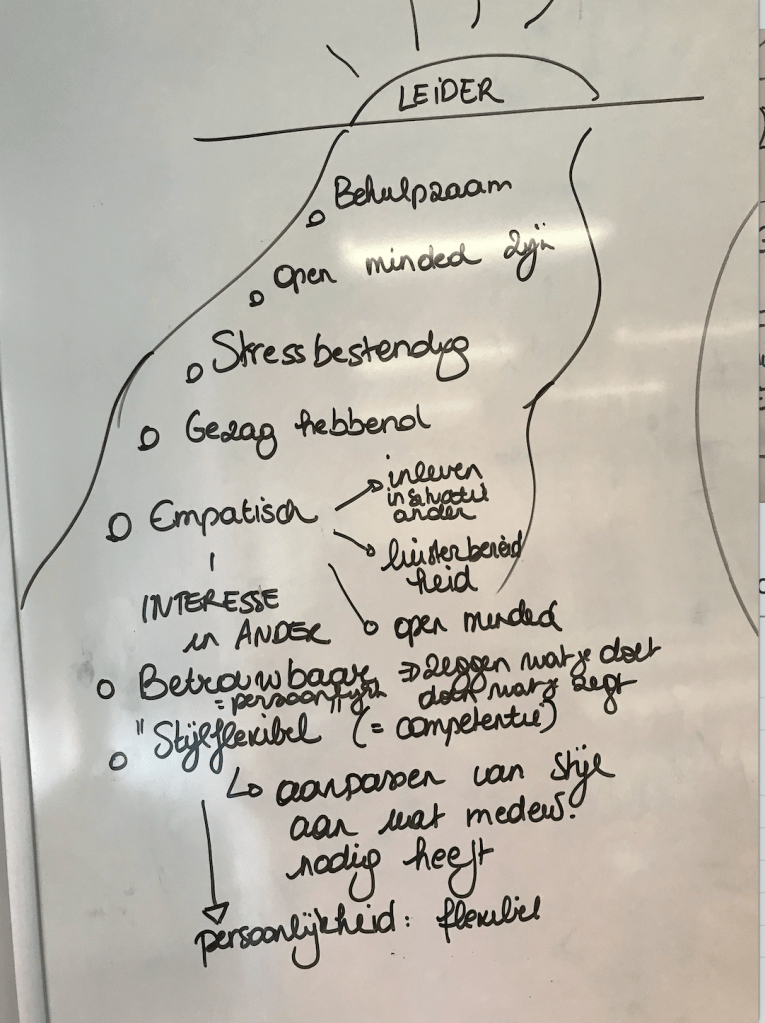 LEIDER
Behulpzaam
Open minded zijn
Stressbestendig
Gezag hebbend
Empatisch
inleven
in situatie
ander
luisterbereid
heid
open minded
INTERESSE
in ANDER
Betrouwbaar => zeggen wat je doet
= persoonlijk doen wat je zegt
"Stijlflexibel (= competentie)
aanpassen van stijl
aan wat medew.
nodig heeft
persoonlijkheid: flexibel